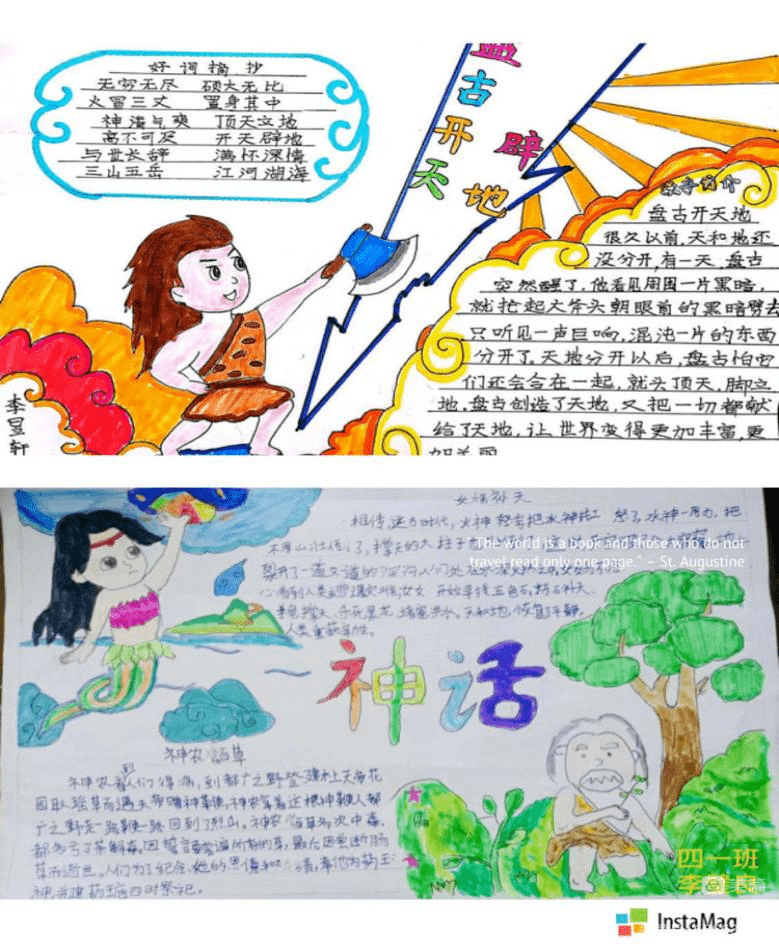 好词摘抄
无穷无尽 硕大无比
火冒三丈 置身其中
神清气爽 顶天立地
高不可及 开天辟地
与世长辞 满怀深情
三山五岳 江河湖海
盘古开天辟地
故事简介
盘古开天地
很久以前,天和地还
没分开,有一天,盘古
突然醒了,他看见周围一片黑暗,
就抡起大斧头朝眼前的黑暗劈去
只听见一声巨响,混沌一片的东西
分开了,天地分开以后,盘古怕它
们还会合在一起,就头顶天,脚立
地,盘古创造了天地,又把一切都献
给了天地,让世界变得更加丰富,更
李昱轩
女娲补天
相传,远古时代,火神 把水神打 怒了,水神一 力,把
不周山 了,撑天的大柱子
"The world is a book and those who do not
travel read only one page." – St. Augustine
裂开了一道又道的深河人们处在
看到人类 开始寻找五色石,持石补天,
撑天,杀死黑龙,堵塞洪水。天和地恢复平静,
人类重获新生。
神话
神农 百草
神农 人们得病,到都广之野登建木上天帝花
园取瑶草而遇天帝赠神鞭,神农拿着这根神鞭从都
广之野走一路鞭一路回到了烈山。神农 草多次中毒,
都多亏了茶解毒,因誓言尝遍所有的草,最后因尝断肠
草而逝世。人们为了纪念他的恩德和 ,奉他为药王
神,并建药王庙四时祭祀。
四一班
李
InstaMag